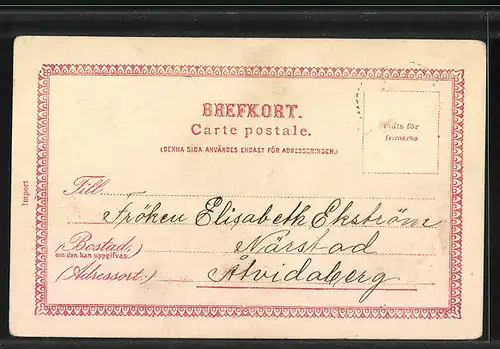 BREFKORT.
Carte postale.
(DENNA SIDA ANVÄNDES ENDAST FÖR ADRESSERINGEN.)
Plats för
frimärke
Import
Till
Fröken Elisabeth Ekström
(Bostad:)
om den kan uppgifvas.
Närstad
(Adressort:)
Åtvidaberg